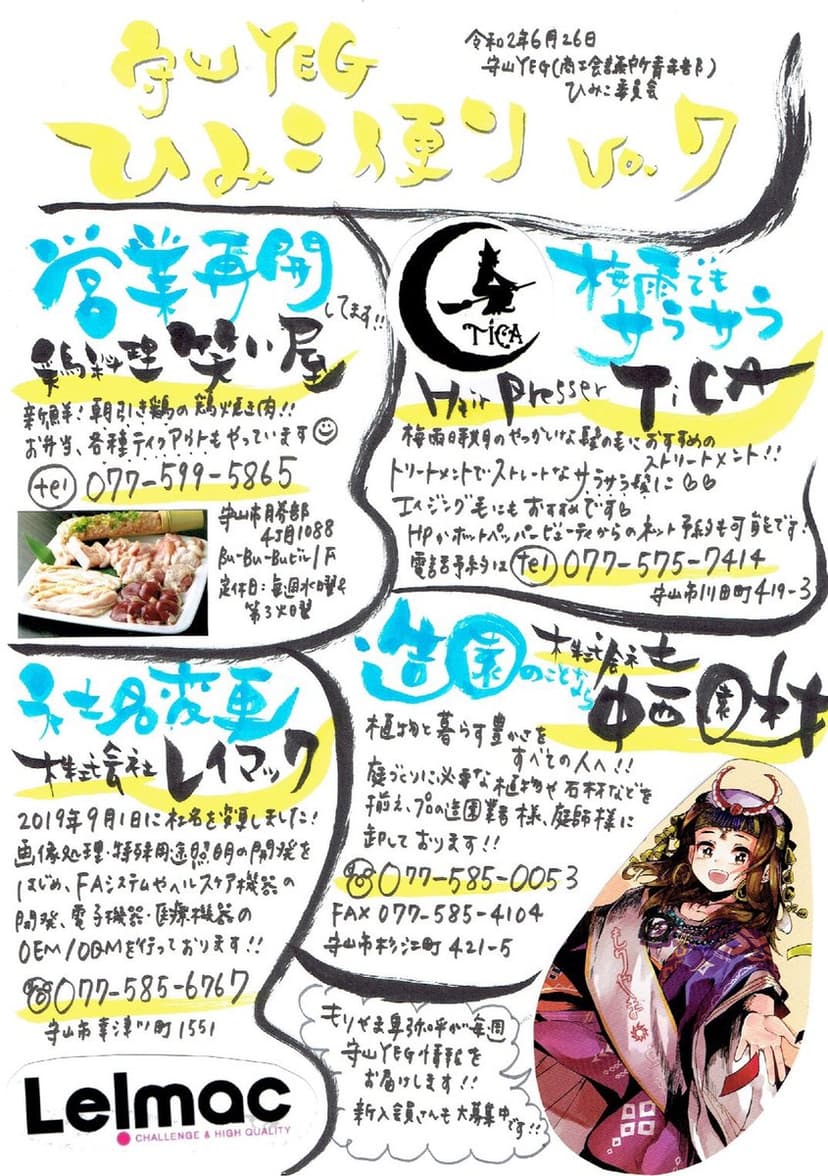 守山YEG
ひみこ便り Vo.7
令和2年6月26日
守山YEG(商工会議所青年部)
ひみこ委員会
営業再開
してます!!
鶏料理 笑い屋
新鮮!朝引き鶏の鶏焼き肉!!
お弁当、各種テイクアウトもやっています
tel 077-599-5865
守山市勝部
4丁目1088
Bu-Bu-Buビル1F
定休日:毎週水曜&
第3火曜
TiCA
梅雨でも
サラサラ
Hair Dresser TiCA
梅雨時期のやっかいな髪の毛におすすめの
ストリートメント!!
トリートメントでストレートなサラサラ髪に
エイジング毛にもおすすめです
HPかホットペッパービューティからのネット予約も可能です!
電話予約は tel 077-575-7414
守山市川田町419-3
社名変更
株式会社 レイマック
2019年9月1日に社名を変更しました!
画像処理・特殊用途照明の開発を
はじめ、FAシステムやヘルスケア機器の
開発、電子機器・医療機器の
OEM/ODMを行っております!!
077-585-6767
守山市幸津川町1551
Leimac
CHALLENGE & HIGH QUALITY
造園のことなら
株式会社
中西園材
植物と暮らす豊かさを
すべての人へ!!
庭づくりに必要な植物や石材などを
揃え、プロの造園業者様、庭師様に
卸しております!!
077-585-0053
FAX 077-585-4104
守山市杉江町421-5
もりやま卑弥呼が毎週
守山YEG情報を
お届けします!!
新入会員さんも大募集中
です!!